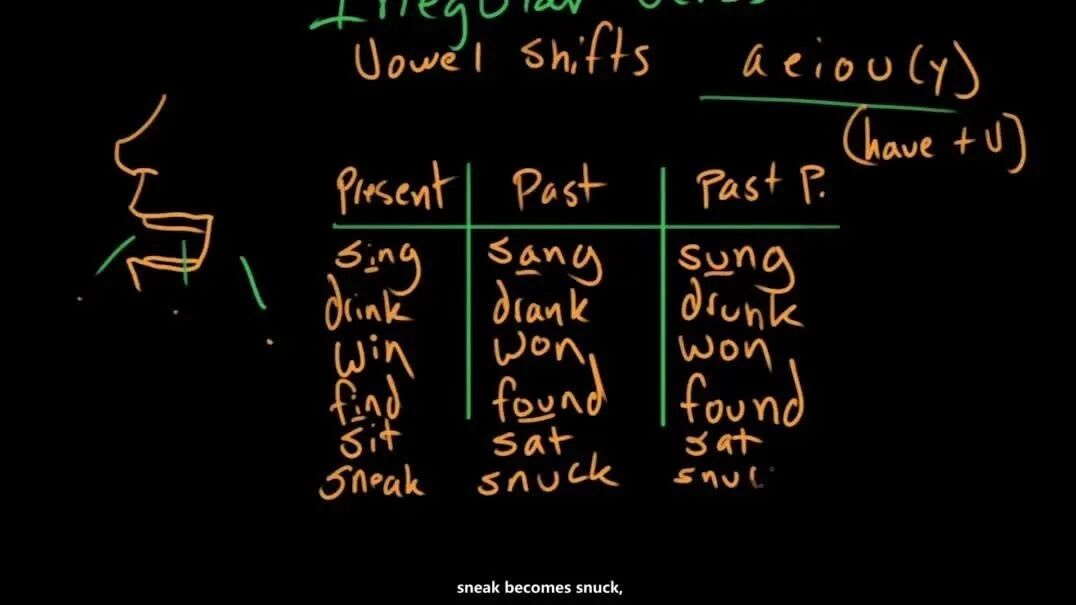 Irregular Verbs
Vowel Shifts a e i o u (y)
(have + V)
Present Past Past P.
sing sang sung
drink drank drunk
win won won
find found found
sit sat sat
sneak snuck snuc
sneak becomes snuck,